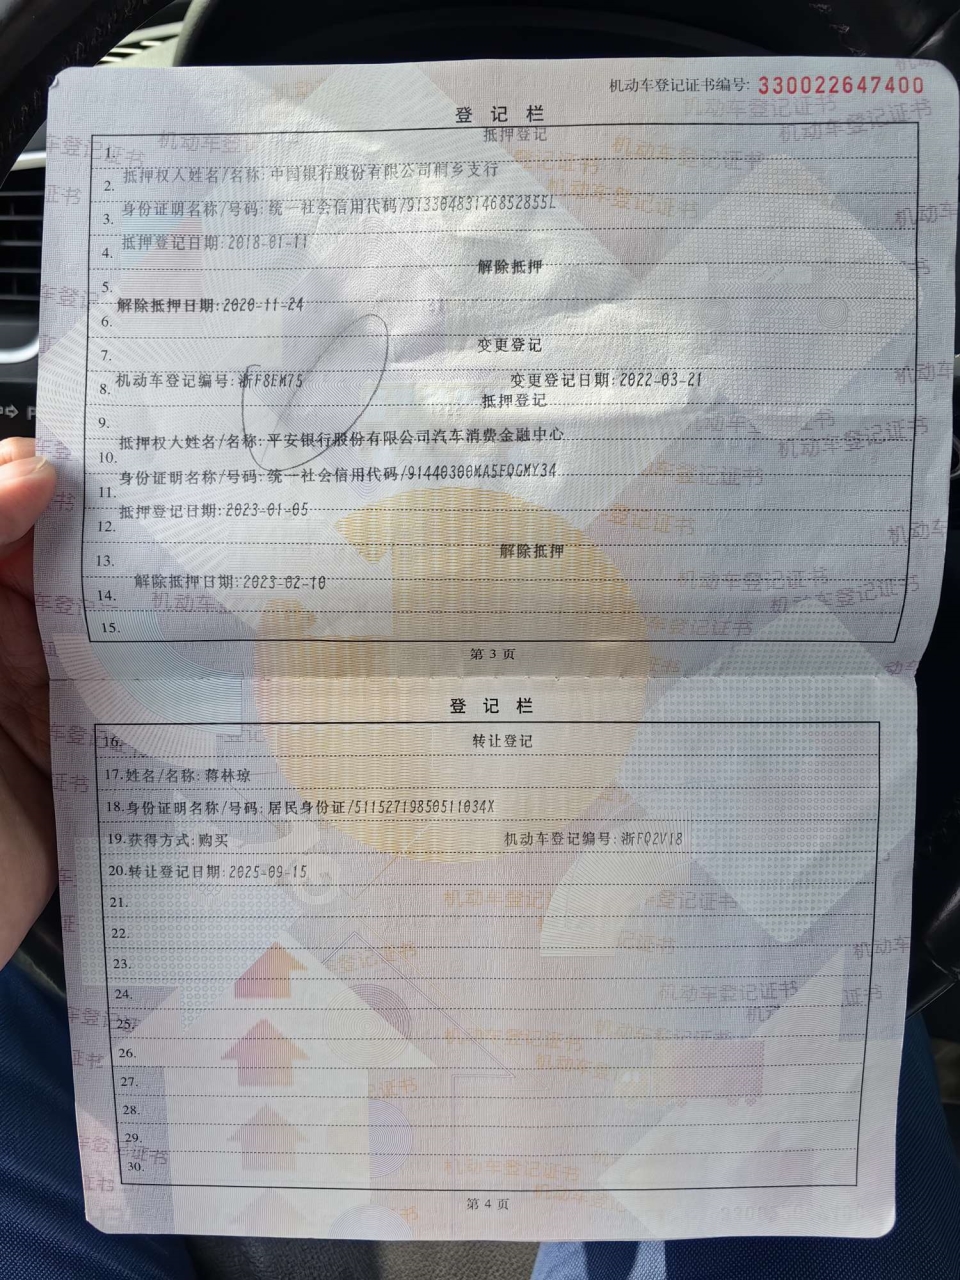 机动车登记证书编号: 330022647400
登 记 栏
1. 抵押登记
2. 抵押权人姓名/名称: 中国银行股份有限公司桐乡支行
3. 身份证明名称/号码: 统一社会信用代码/91330483146852855L
4. 抵押登记日期: 2018-01-11
5. 解除抵押
6. 解除抵押日期: 2020-11-24
7. 变更登记
8. 机动车登记编号: 浙F8EM75 变更登记日期: 2022-03-21
9. 抵押登记
10. 抵押权人姓名/名称: 平安银行股份有限公司汽车消费金融中心
11. 身份证明名称/号码: 统一社会信用代码/91440300MA5FQGMY34
12. 抵押登记日期: 2023-01-05
13. 解除抵押
14. 解除抵押日期: 2023-02-10
15.
第 3 页
登 记 栏
16. 转让登记
17. 姓名/名称: 蒋林琼
18. 身份证明名称/号码: 居民身份证/51152719850511034X
19. 获得方式: 购买 机动车登记编号: 浙FQ2V18
20. 转让登记日期: 2025-09-15
21.
22.
23.
24.
25.
26.
27.
28.
29.
30.
第 4 页